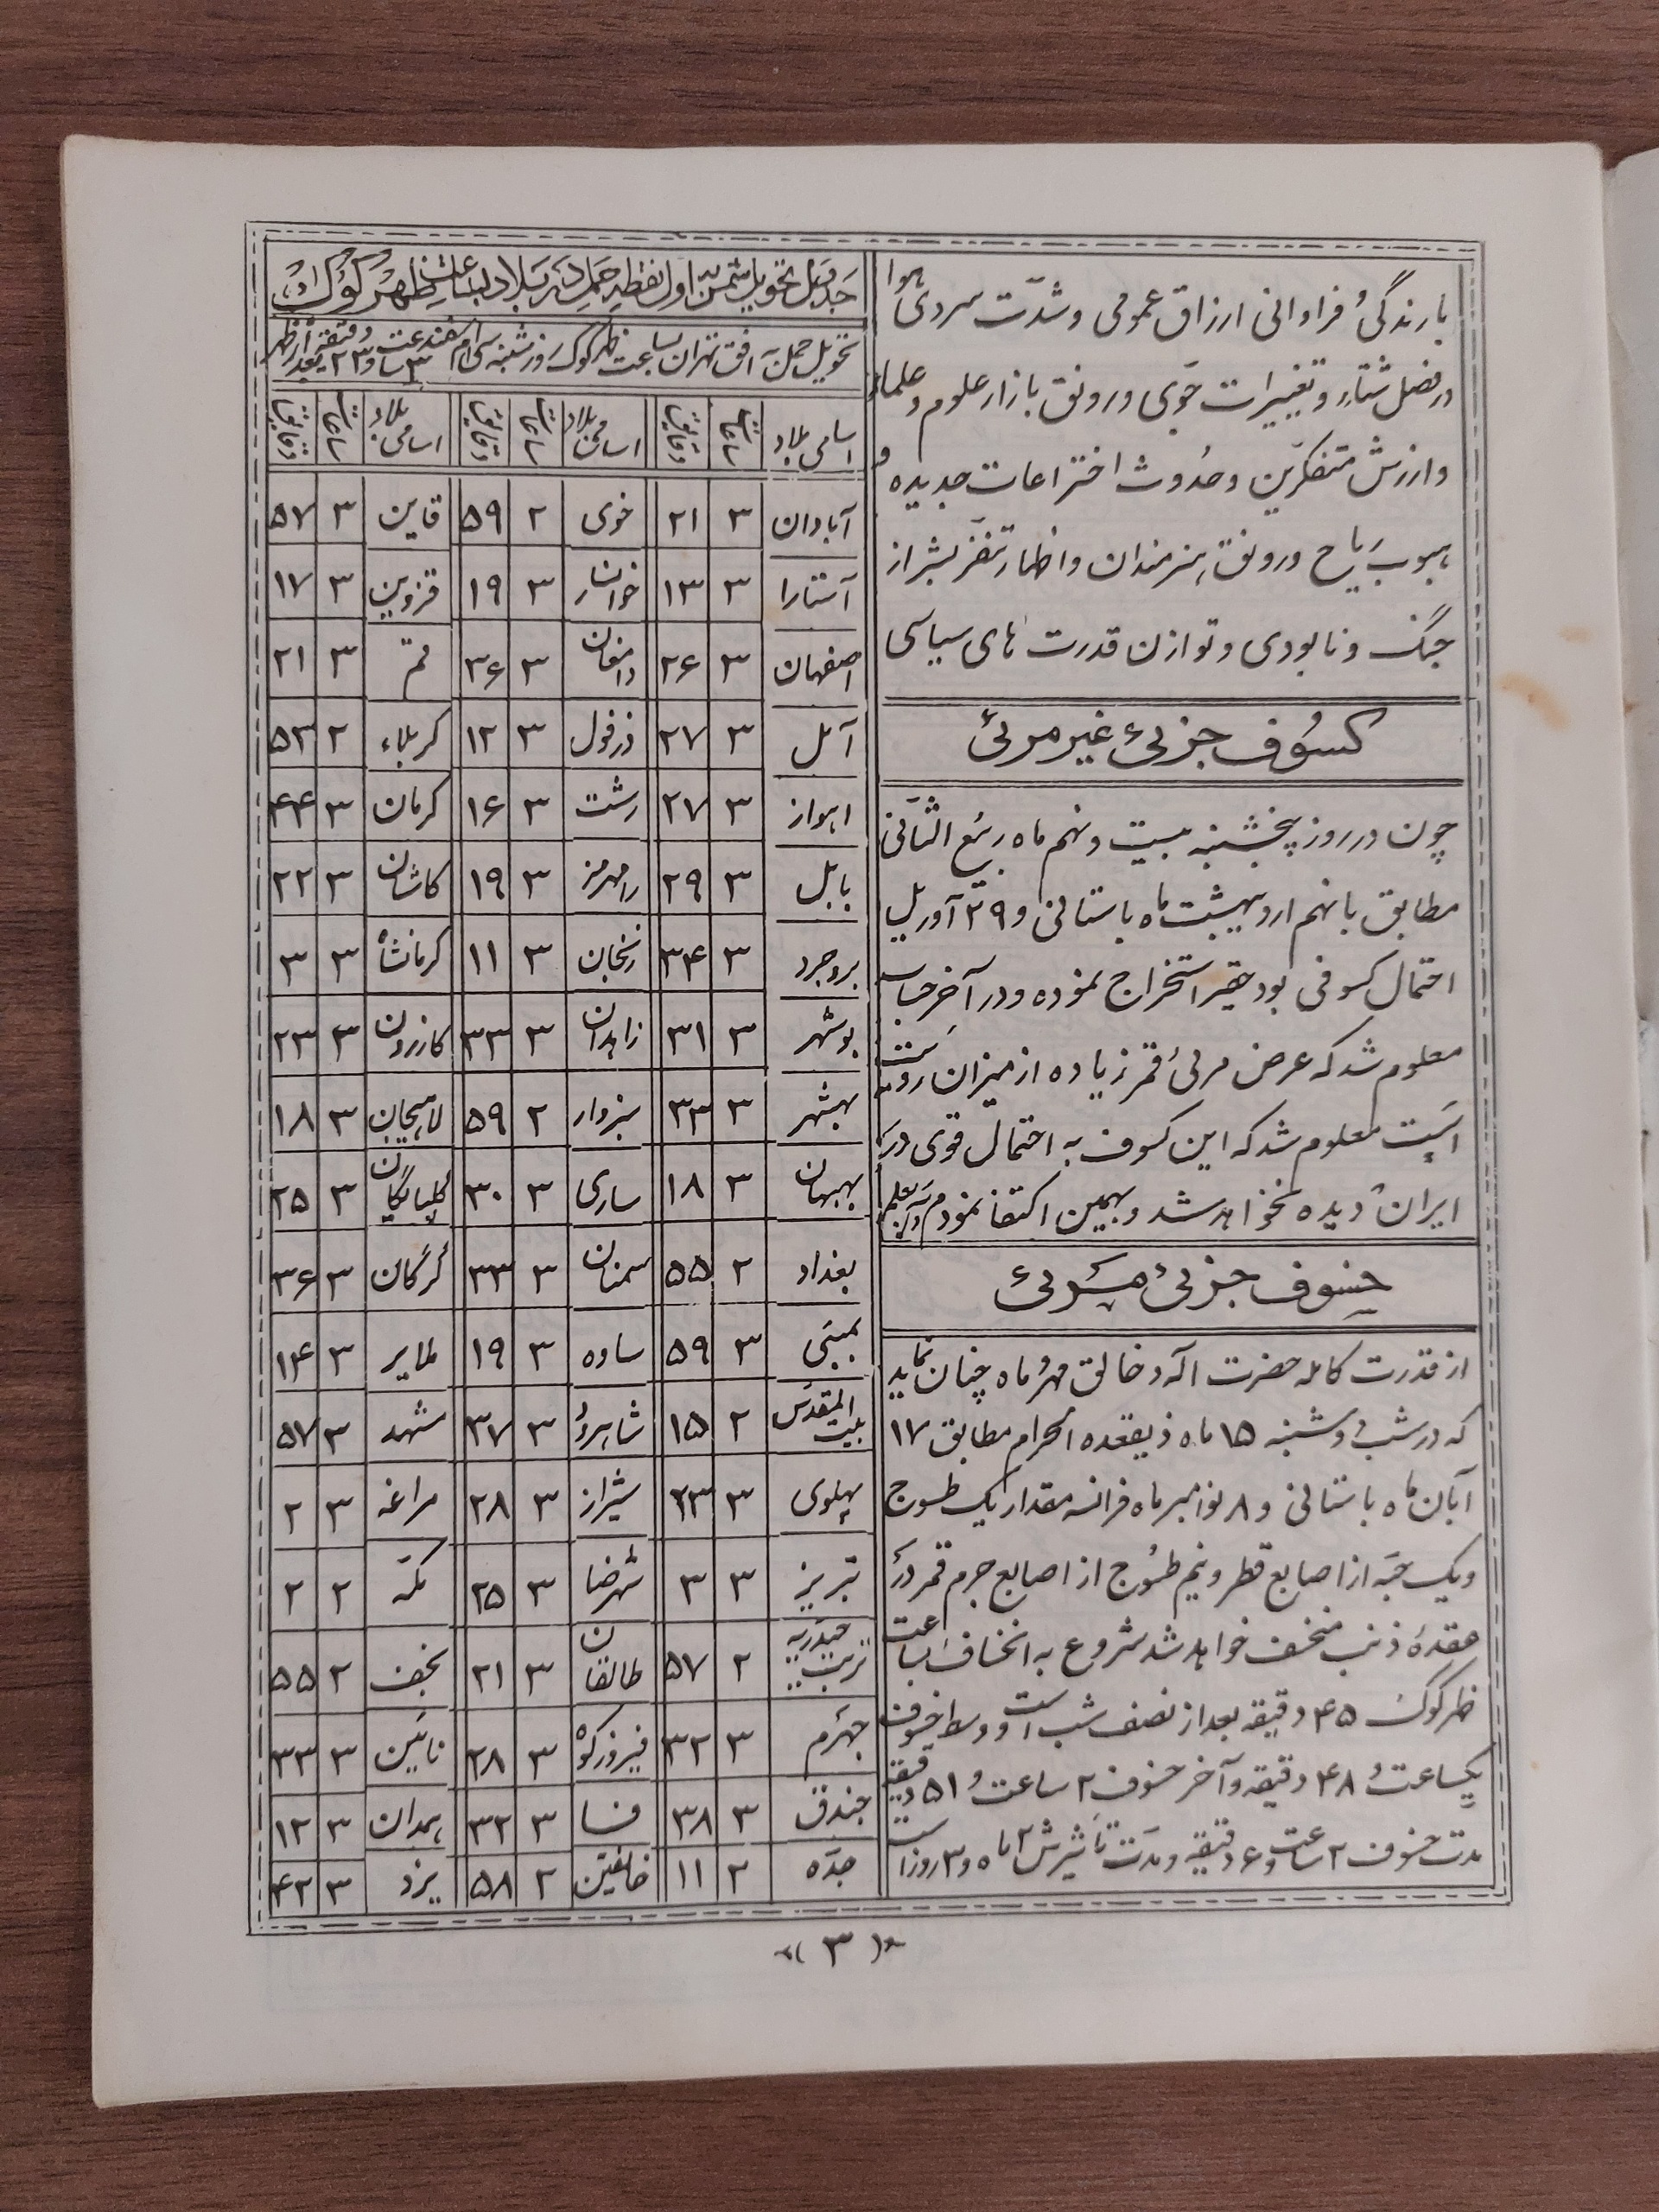 بارندگی و فراوانی ارزاق عمومی و شدّت سردی هوا
در فصل شتاء و تغییرات جوّی و رونق بازار علوم و علماء
و ارزش متفکرّین و حدُوث اختراعات جدیده و
هبوب ریاح و رونق هنرمندان و اظهار تنفّر بشر از
جنگ و نابودی و توازن قدرت های سیاسی
کسُوف جزئی غیر مرئی
چون در روز پنجشنبه بیست و نهم ماه ربیع الثّانی
مطابق با نهم اردیبهشت ماه باستانی و ۲۹ آوریل
احتمال کسوفی بود حقیر استخراج نموده و در آخر حساب
معلوم شد که عرض مرئی قمر زیاده از میزان رویت
است معلوم شد که این کسوف به احتمال قوی در
ایران دیده نخواهد شد و بهمین اکتفا نمودم والله اعلم
خسوف جزئی مرئی
از قدرت کامله حضرت اله و خالق مهر و ماه چنان نماید
که در شب دوشنبه ۱۵ ماه ذیقعده الحرام مطابق ۱۷
آبان ماه باستانی و ۸ نوامبر ماه فرانسه مقدار یک طسوج
و یک حبّه از اصابع قطر و نیم طسُوج از اصابع جرم قمر در
عقدهٔ ذنب منخسف خواهد شد شروع به انخساف بساعت
ظهرکوک ۴۵ دقیقه بعد از نصف شب است و وسط خسوف
یکساعت و ۴۸ دقیقه و آخر خسوف ۲ ساعت و ۵۱ دقیقه
مدت خسوف ۲ ساعت و ۶ دقیقه و مدّت تأثیرش ۲ ماه و ۳ روز است
جدول تحویل شمس باول نقطه حمل در بلاد بساعت ظهرکوک
تحویل حمل به افق تهران بساعت ظهرکوک روز شنبه سی ام اسفند ۳ ساعت و ۲۳ دقیقه بعد از ظهر
اسامی بلاد ساعات دقایق اسامی بلاد ساعات دقایق اسامی بلاد ساعات دقایق
آبادان ۳ ۲۱ خوی ۲ ۵۹ قاین ۳ ۵۷
آستارا ۳ ۱۳ خوانسار ۳ ۱۹ قزوین ۳ ۱۷
اصفهان ۳ ۲۶ دامغان ۳ ۳۶ قم ۳ ۲۱
آمل ۳ ۲۷ دزفول ۳ ۱۲ کربلاء ۲ ۵۳
اهواز ۳ ۲۷ رشت ۳ ۱۶ کرمان ۳ ۴۴
بابل ۳ ۲۹ رامهرمز ۳ ۱۹ کاشان ۳ ۲۲
بروجرد ۳ ۳۴ زنجان ۳ ۱۱ کرمانشاه ۳ ۳
بوشهر ۳ ۳۱ زاهدان ۳ ۳۳ کازرون ۳ ۲۳
بهشهر ۳ ۳۳ سبزوار ۲ ۵۹ لاهیجان ۳ ۱۸
بهبهان ۳ ۱۸ ساری ۳ ۳۰ گلپایگان ۳ ۲۵
بغداد ۲ ۵۵ سمنان ۳ ۳۳ گرگان ۳ ۳۶
بمبئی ۳ ۵۹ ساوه ۳ ۱۹ ملایر ۳ ۱۴
بیت المقدس ۲ ۱۵ شاهرود ۳ ۳۷ مشهد ۳ ۵۷
پهلوی ۳ ۲۳ شیراز ۳ ۲۸ مراغه ۳ ۲
تبریز ۳ ۳ شهرضا ۳ ۲۵ مکّه ۲ ۲
تربت حیدریه ۲ ۵۷ طالقان ۳ ۲۱ نجف ۲ ۵۵
جهرم ۳ ۳۲ فیروزکوه ۳ ۲۸ نائین ۳ ۳۳
جندق ۳ ۳۸ فسا ۳ ۳۲ همدان ۳ ۱۲
جدّه ۲ ۱۱ خانقین ۲ ۵۸ یزد ۳ ۴۲
(۳)